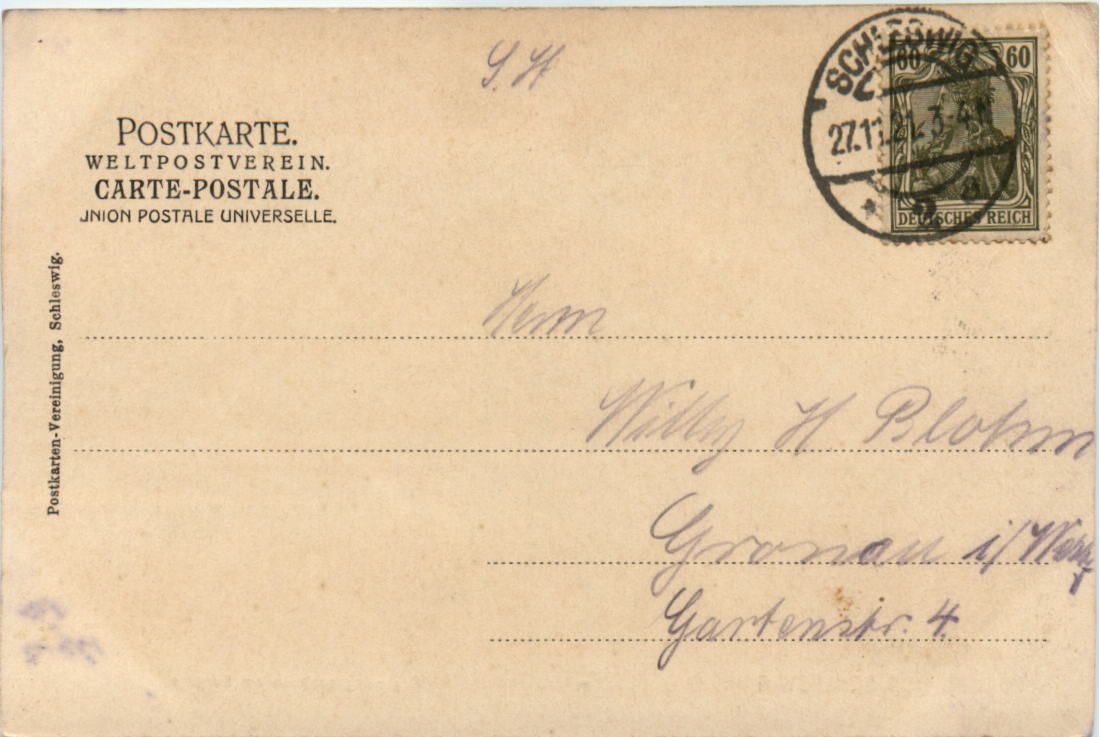 S. H
POSTKARTE.
WELTPOSTVEREIN.
CARTE-POSTALE.
UNION POSTALE UNIVERSELLE.
SCHLESWIG
27.11.21. 3-4N
* 2 a
60 60
DEUTSCHES REICH
Postkarten-Vereinigung, Schleswig.
Herrn
Willy H Blohm
Gronau i/Westf
Gartenstr. 4.